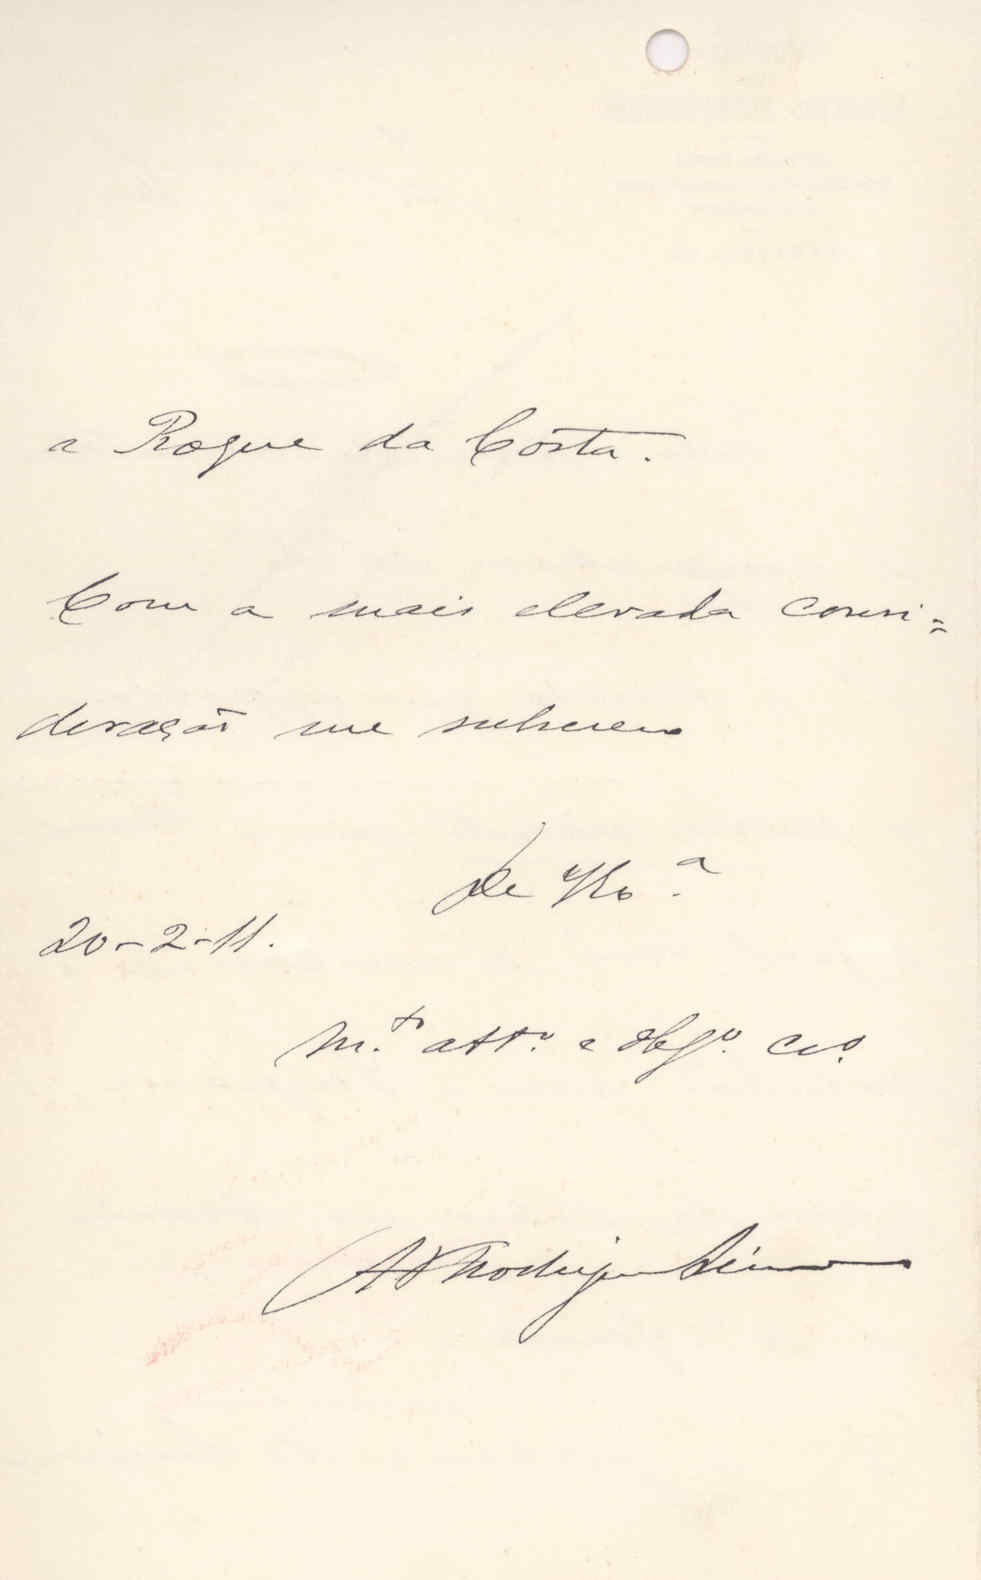 a Roque da Costa.
Com a mais elevada consi=
deração me subscrevo
De V. Exª
20-2-11.
M.to att.º e obg.º
A Rodrigues